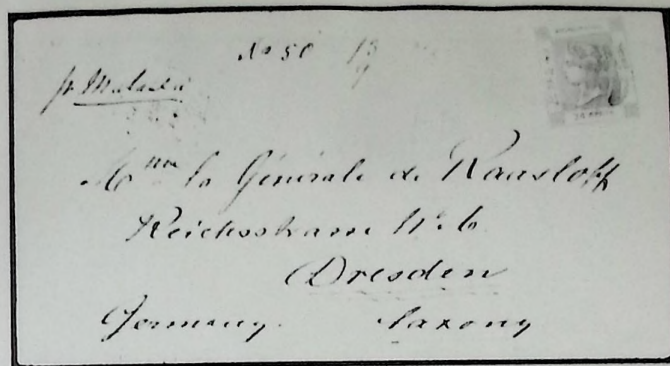 No 50 13
9
pr Malacca
Mme la Générale de Raasloff
Reichsstrasse No 6
Dresden
Germany. Saxony